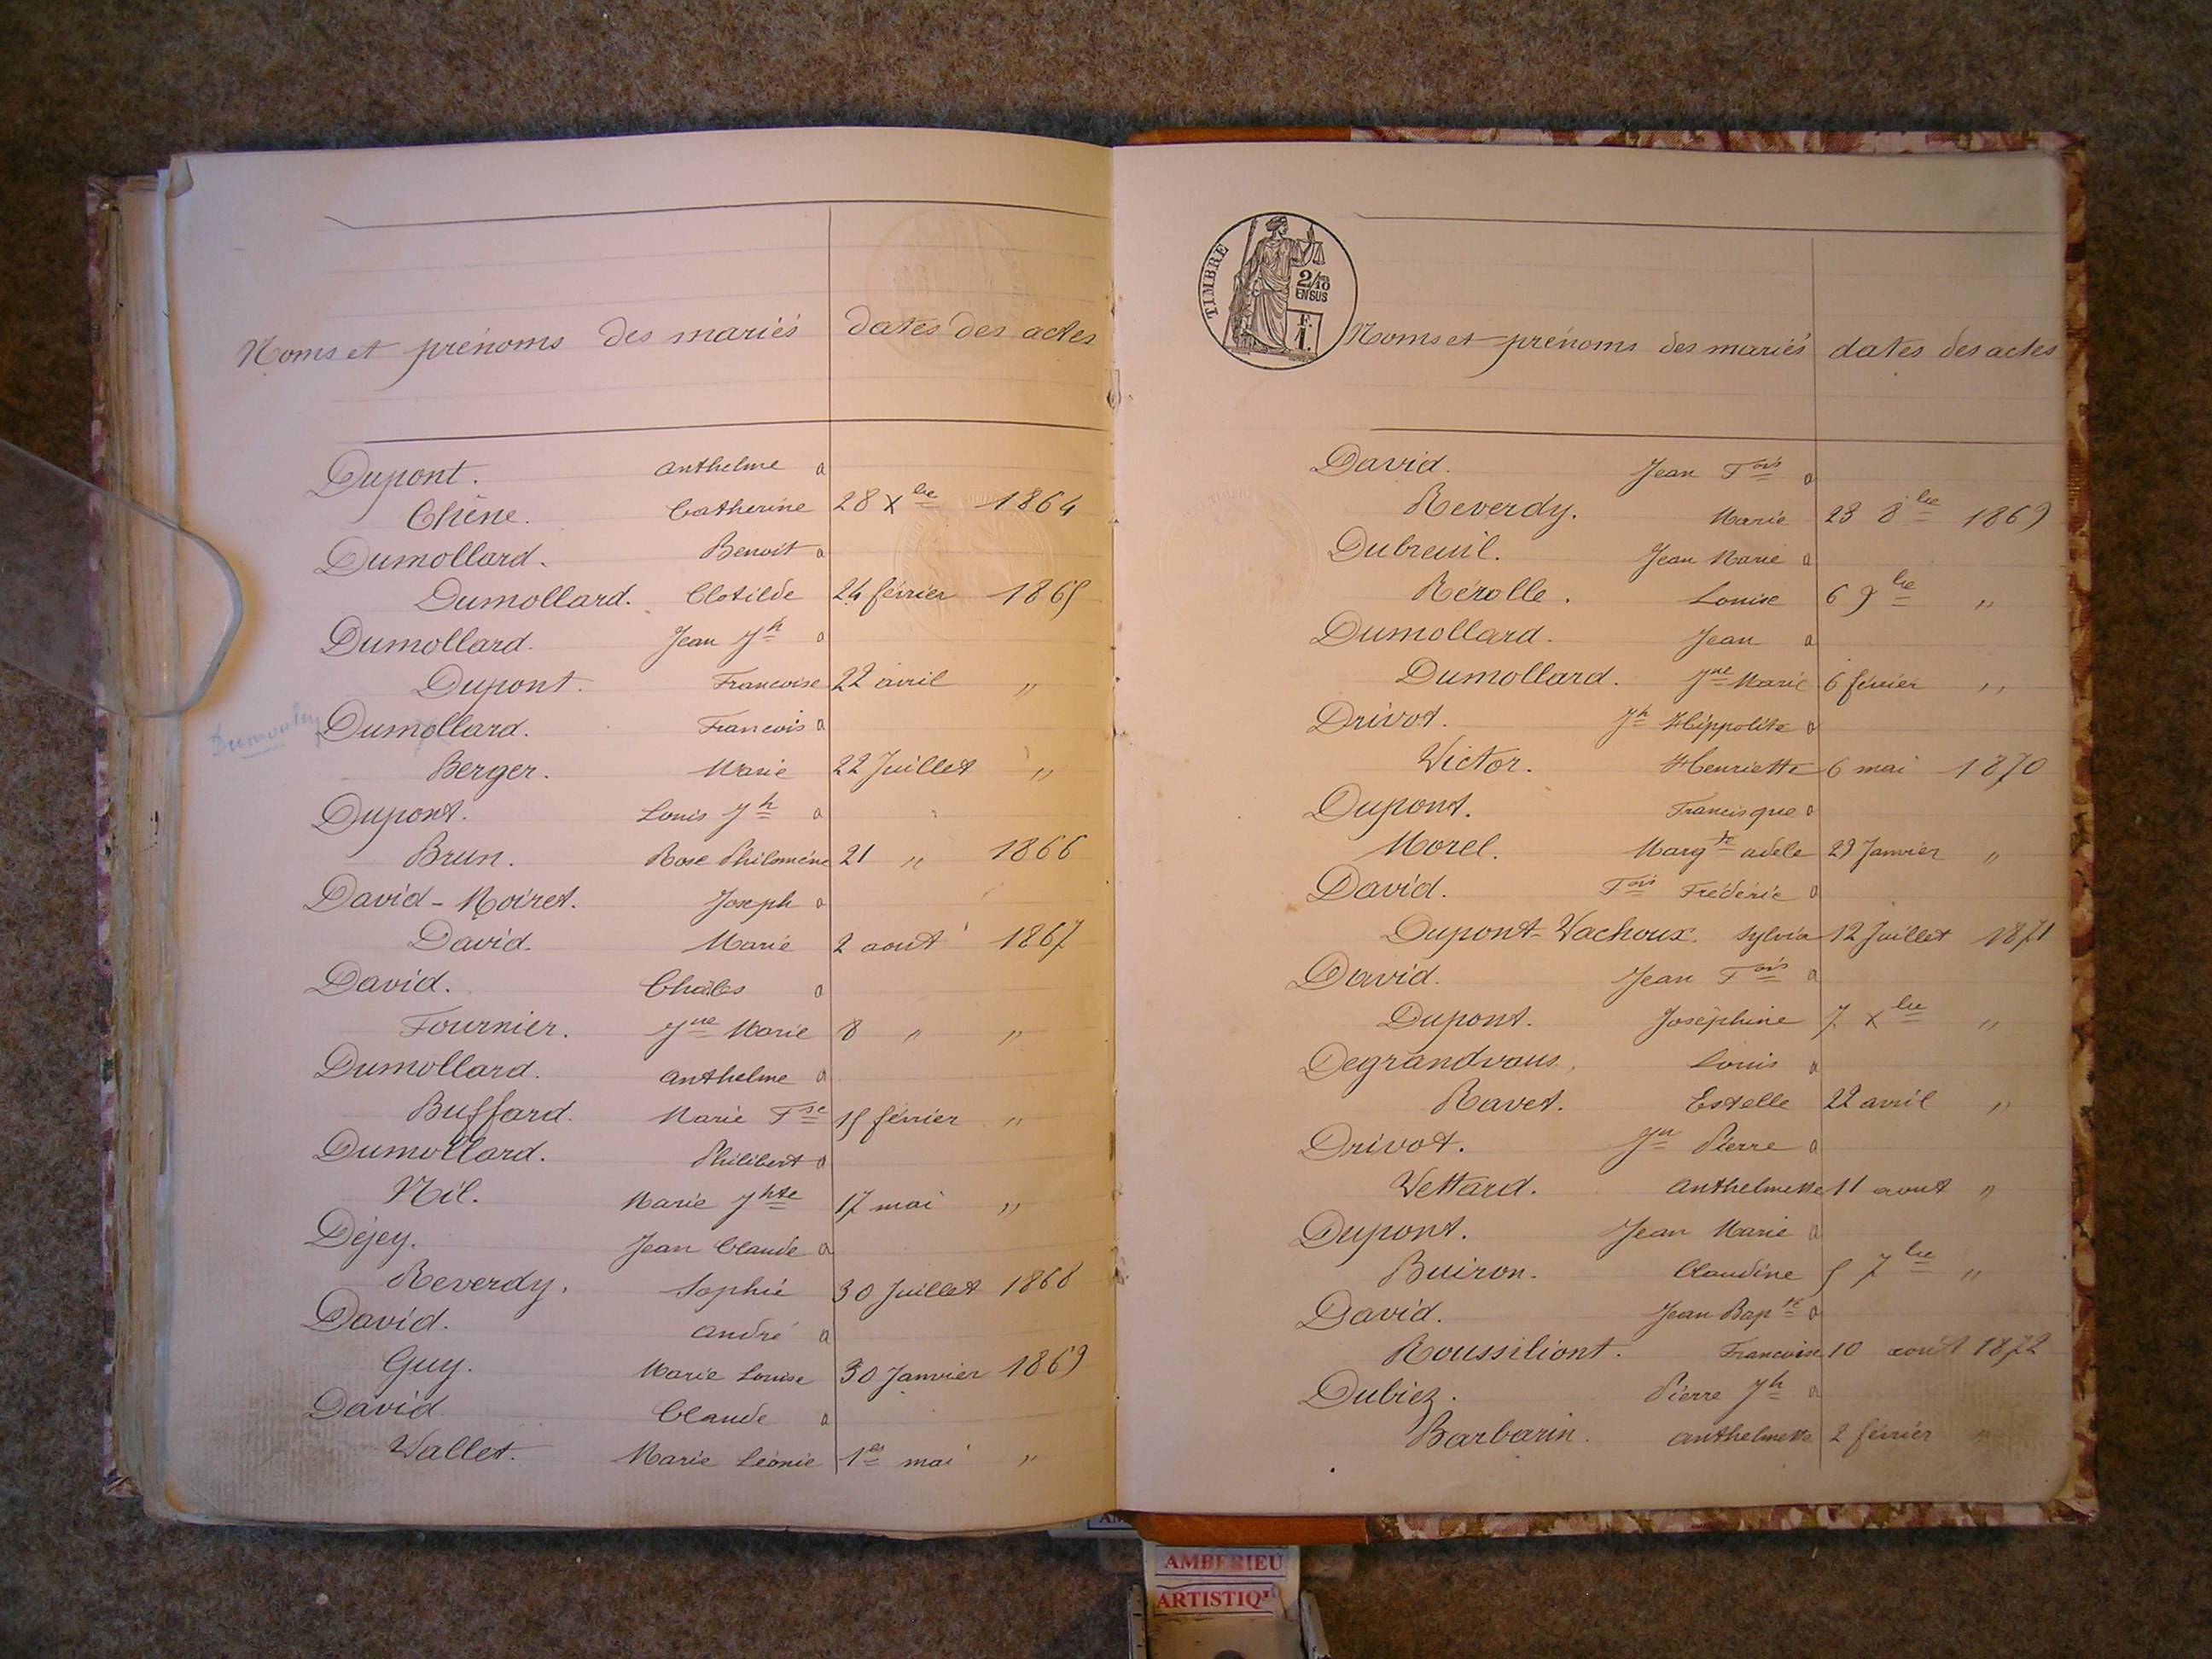 Noms et prénoms des mariés dates des actes
Dupont. Anthelme a
Chêne. Catherine 28 Xbre 1864
Dumollard. Benoit a
Dumollard. Clotilde 24 février 1865
Dumollard. Jean Jh a
Dupont. Francoise 22 avril "
Dumollard. Francois a
Berger. Marie 22 Juillet "
Dupont. Louis Jh a
Brun. Rose Philomène 21 " 1866
David-Noiret. Joseph a
David. Marie 2 aout 1867
David. Chales a
Fournier. Jne Marie 8 " "
Dumollard. Anthelme a
Buffard. Marie Fse 15 février "
Dumollard. Philibert a
Nil. Marie Jhte 17 mai "
Déjey. Jean Claude a
Reverdy. Sophie 30 Juillet 1868
David. André a
Guy. Marie Louise 30 Janvier 1869
David. Claude a
Vallet. Marie Léonie 1er mai "
TIMBRE
2/10
EN SUS
F.
1.
Noms et prénoms des mariés dates des actes
David. Jean Fois a
Reverdy. Marie 23 8bre 1869
Dubreuil. Jean Marie a
Rérolle. Louise 6 9bre "
Dumollard. Jean a
Dumollard. Jne Marie 6 février "
Drivot. Jh Hippolite a
Victor. Henriette 6 mai 1870
Dupont. Francisque a
Morel. Margte adele 29 Janvier "
David. Fois Frédéric a
Dupont-Vachoux. Sylvia 12 Juillet 1871
David. Jean Fois a
Dupont. Joséphine 7 Xbre "
Degrandvaus, Louis a
Ravet. Estelle 22 avril "
Drivot. Jn Pierre a
Vettard. Anthelmette 11 aout "
Dupont. Jean Marie a
Buiron. Claudine 5 7bre "
David. Jean Bapte a
Roussiliont. Francoise 10 août 1872
Dubiez. Pierre Jh a
Barbarin. Anthelmette 2 février "
AMBERIEU
ARTISTIQ